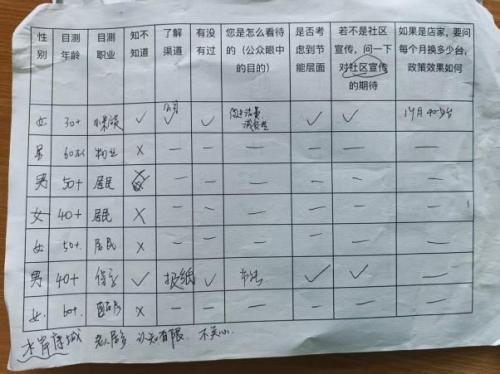 性别 目测年龄 目测职业 知不知道 了解渠道 有没有过 您是怎么看待的（公众眼中的目的） 是否考虑到节能层面 若不是社区宣传，问一下对社区宣传的期待 如果是店家，要问每个月换多少台，政策效果如何
女 30+ ✓ ✓ ✓ ✓ ✓ 1个月
男 × — — — — — —
男 50+ 居民 — — — — — —
女 40+ 居民 × — — — — — —
女 50+ 居民 × — — — — — —
男 40+ ✓ 报纸 ✓ ✓ ✓ —
女 60+ × — — — — — —
老人居多 认知有限 不关心